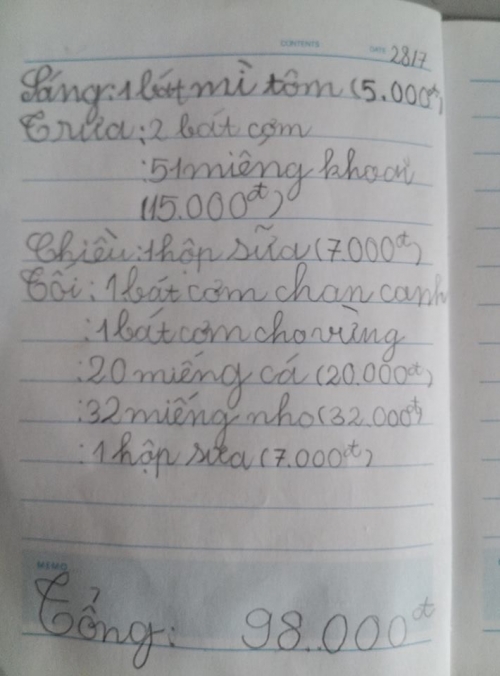 CONTENTS DATE 28/7
Sáng: 1 bát mì tôm (5.000đ)
Trưa: 2 bát cơm
: 51 miếng khoai
(15.000đ)
Chiều: 1 hộp sữa (7.000đ)
Tối: 1 bát cơm chan canh
: 1 bát cơm cho vừng
: 20 miếng cá (20.000đ)
: 32 miếng nho (32.000đ)
: 1 hộp sữa (7.000đ)
MEMO
Tổng: 98.000đ